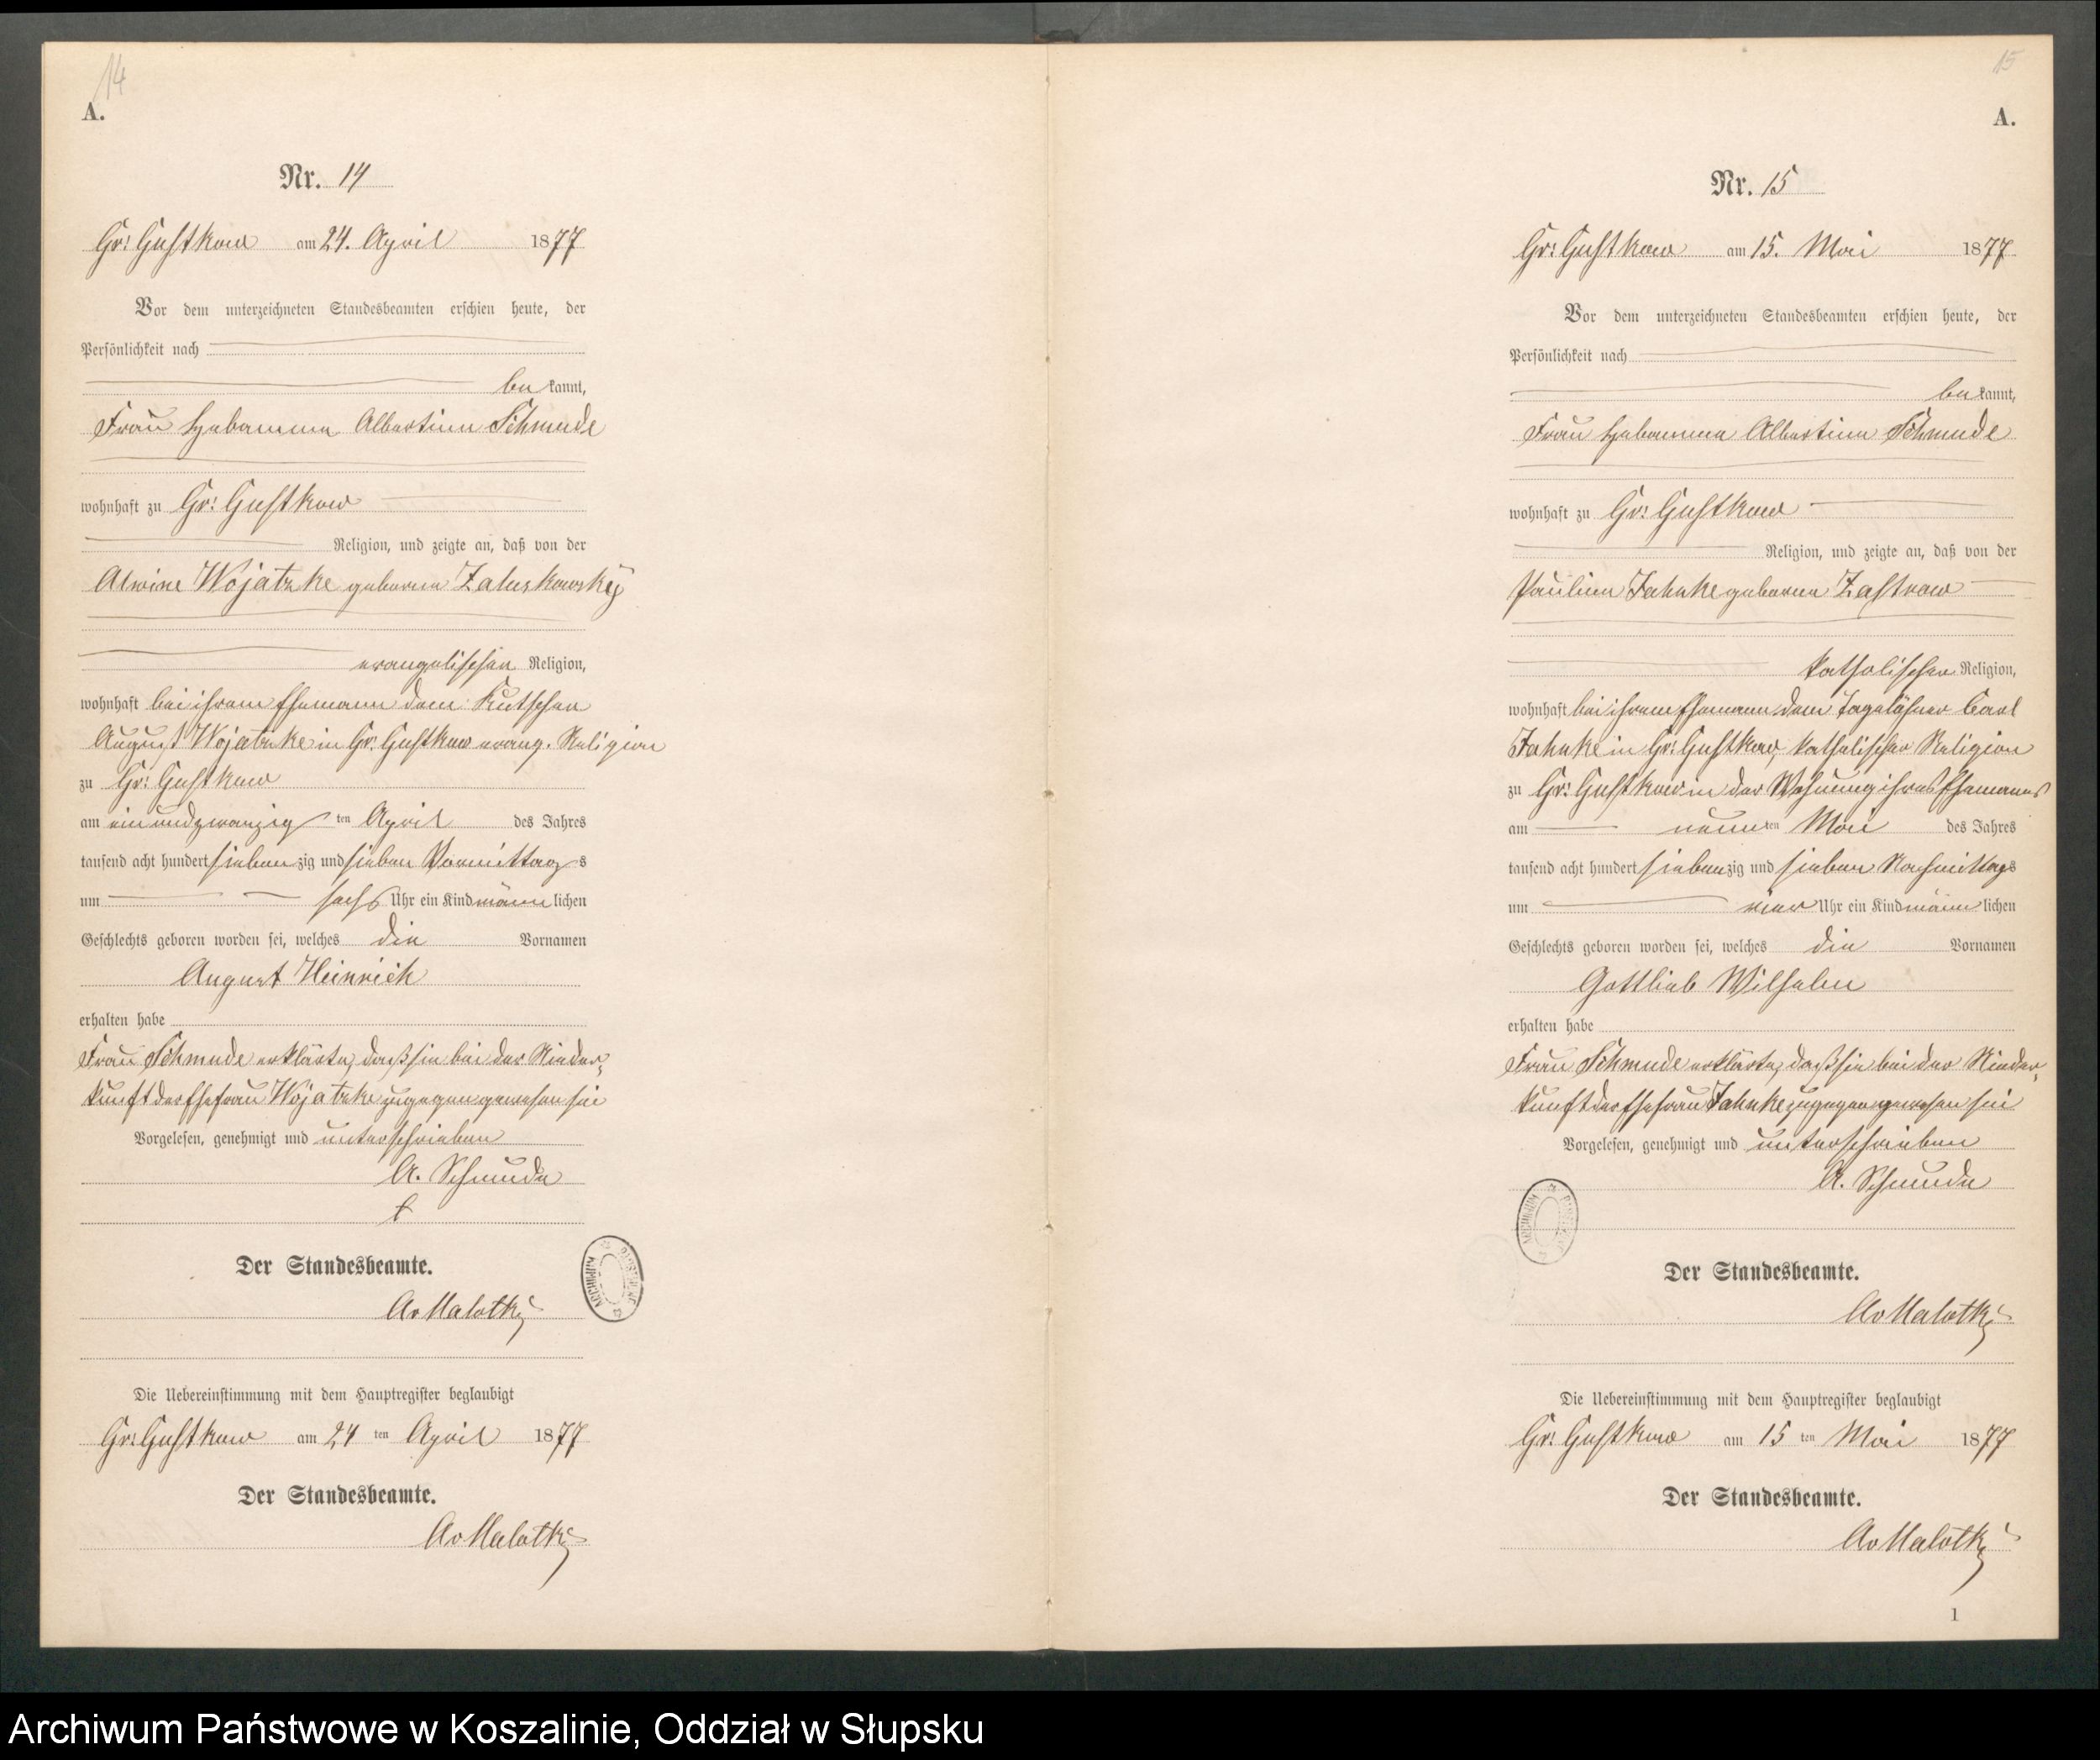 14
A.
Nr. 14
Gr: Gustkow am 24. April 1877
Vor dem unterzeichneten Standesbeamten erschien heute, der
Persönlichkeit nach
be kannt,
Frau Hebamme Albertine Schmude
wohnhaft zu Gr: Gustkow
Religion, und zeigte an, daß von der
Alwine Wojatzke geborne Zaluskowsky
evangelischen Religion,
wohnhaft bei ihrem Ehemann dem Kutscher
August Wojatzke in Gr. Gustkow evang. Religion
zu Gr: Gustkow
am ein und zwanzig ten April des Jahres
tausend acht hundert sieben zig und sieben Vormittag s
um sechs Uhr ein Kind männ lichen
Geschlechts geboren worden sei, welches die Vornamen
August Heinrich
erhalten habe
Frau Schmude erklärte, daß sie bei der Nieder-
kunft der Ehefrau Wojatzke zugegen gewesen sei
Vorgelesen, genehmigt und unterschrieben
A. Schmude
Der Standesbeamte.
AvMalotky
Die Uebereinstimmung mit dem Hauptregister beglaubigt
Gr: Gustkow am 24 ten April 1877
Der Standesbeamte.
AvMalotky
15
A.
Nr. 15
Gr: Gustkow am 15. Mai 1877
Vor dem unterzeichneten Standesbeamten erschien heute, der
Persönlichkeit nach
be kannt,
Frau Hebamme Albertine Schmude
wohnhaft zu Gr: Gustkow
Religion, und zeigte an, daß von der
Pauline Jahnke geborne Zastrow
katholischer Religion,
wohnhaft bei ihrem Ehemann dem Tagelöhner Carl
Jahnke in Gr: Gustkow, katholischer Religion
zu Gr: Gustkow in der Wohnung ihres Ehemannes
am neun ten Mai des Jahres
tausend acht hundert sieben zig und sieben Nachmittags
um vier Uhr ein Kind männ lichen
Geschlechts geboren worden sei, welches die Vornamen
Gottlieb Wilhelm
erhalten habe
Frau Schmude erklärte, daß sie bei der Nieder-
kunft der Ehefrau Jahnke zugegen gewesen sei
Vorgelesen, genehmigt und unterschrieben
A. Schmude
Der Standesbeamte.
AvMalotky
Die Uebereinstimmung mit dem Hauptregister beglaubigt
Gr: Gustkow am 15 ten Mai 1877
Der Standesbeamte.
AvMalotky
1
Archiwum Państwowe w Koszalinie, Oddział w Słupsku